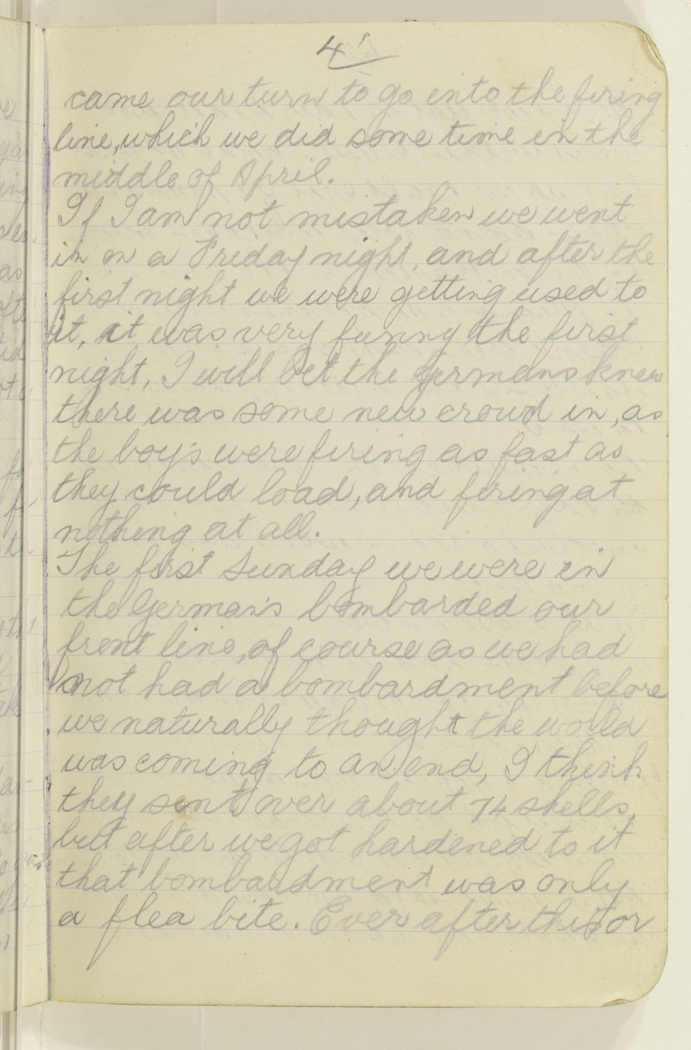 41
came our turn to go into the firing
line, which we did some time in the
middle of April.
If I am not mistaken we went
in on a Friday night, and after the
first night we were getting used to
it, it was very funny the first
night, I will bet the Germans knew
there was some new crowd in, as
the boy's were firing as fast as
they could load, and firing at
nothing at all.
The first Sunday we were in
the Germans bombarded our
front line, of course as we had
not had a bombardment before
we naturally thought the world
was coming to an end, I think
they sent over about 74 shells,
but after we got hardened to it
that bombardment was only
a flea bite. Ever after this for